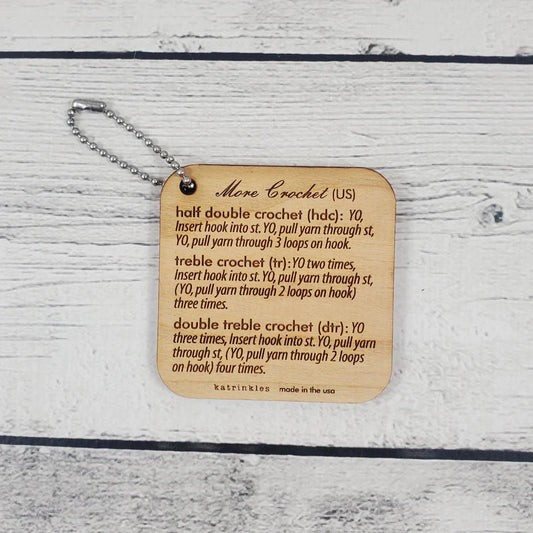 More Crochet (US)
half double crochet (hdc): YO,
Insert hook into st. YO, pull yarn through st,
YO, pull yarn through 3 loops on hook.
treble crochet (tr): YO two times,
Insert hook into st. YO, pull yarn through st,
(YO, pull yarn through 2 loops on hook)
three times.
double treble crochet (dtr): YO
three times, Insert hook into st. YO, pull yarn
through st, (YO, pull yarn through 2 loops
on hook) four times.
katrinkles made in the usa